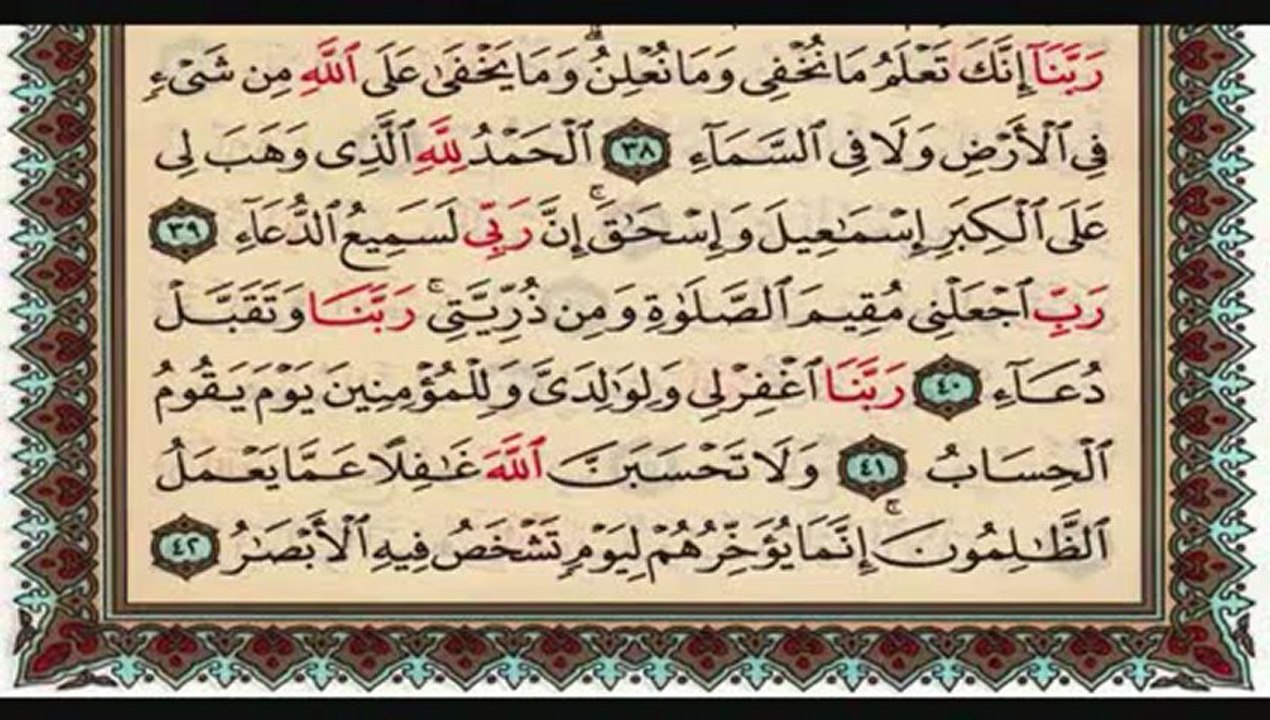 رَبَّنَآ إِنَّكَ تَعْلَمُ مَا نُخْفِى وَمَا نُعْلِنُ ۗ وَمَا يَخْفَىٰ عَلَى ٱللَّهِ مِن شَىْءٍ
فِى ٱلْأَرْضِ وَلَا فِى ٱلسَّمَآءِ ٣٨ ٱلْحَمْدُ لِلَّهِ ٱلَّذِى وَهَبَ لِى
عَلَى ٱلْكِبَرِ إِسْمَٰعِيلَ وَإِسْحَٰقَ ۚ إِنَّ رَبِّى لَسَمِيعُ ٱلدُّعَآءِ ٣٩
رَبِّ ٱجْعَلْنِى مُقِيمَ ٱلصَّلَوٰةِ وَمِن ذُرِّيَّتِى ۚ رَبَّنَا وَتَقَبَّلْ
دُعَآءِ ٤٠ رَبَّنَا ٱغْفِرْ لِى وَلِوَٰلِدَىَّ وَلِلْمُؤْمِنِينَ يَوْمَ يَقُومُ
ٱلْحِسَابُ ٤١ وَلَا تَحْسَبَنَّ ٱللَّهَ غَٰفِلًا عَمَّا يَعْمَلُ
ٱلظَّٰلِمُونَ ۚ إِنَّمَا يُؤَخِّرُهُمْ لِيَوْمٍ تَشْخَصُ فِيهِ ٱلْأَبْصَٰرُ ٤٢